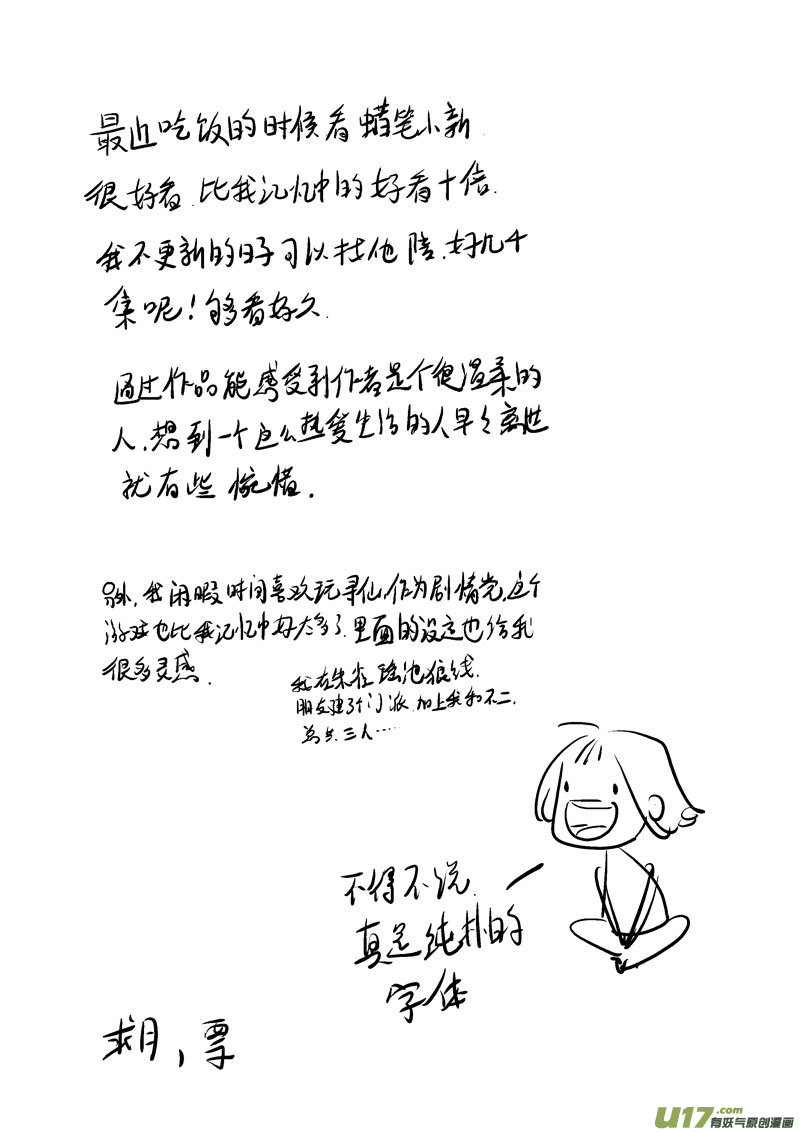 最近吃饭的时候看蜡笔小新
很好看.比我记忆中的好看十倍.
我不更新的日子可以找他陪.好几千
集呢!够看好久.
通过作品能感受到作者是个很温柔的
人.想到一个这么热爱生活的人早早离世
就有些惋惜.
另外,我闲暇时间喜欢玩寻仙,作为剧情党,这个
游戏也比我记忆中好太多了.里面的设定也给我
很多灵感.
我在朱雀瑶池狼线.
朋友建了个门派.加上我和不二.
总共三人……
不得不说.
真是纯朴的
字体
求月,票
U17.com
有妖气原创漫画